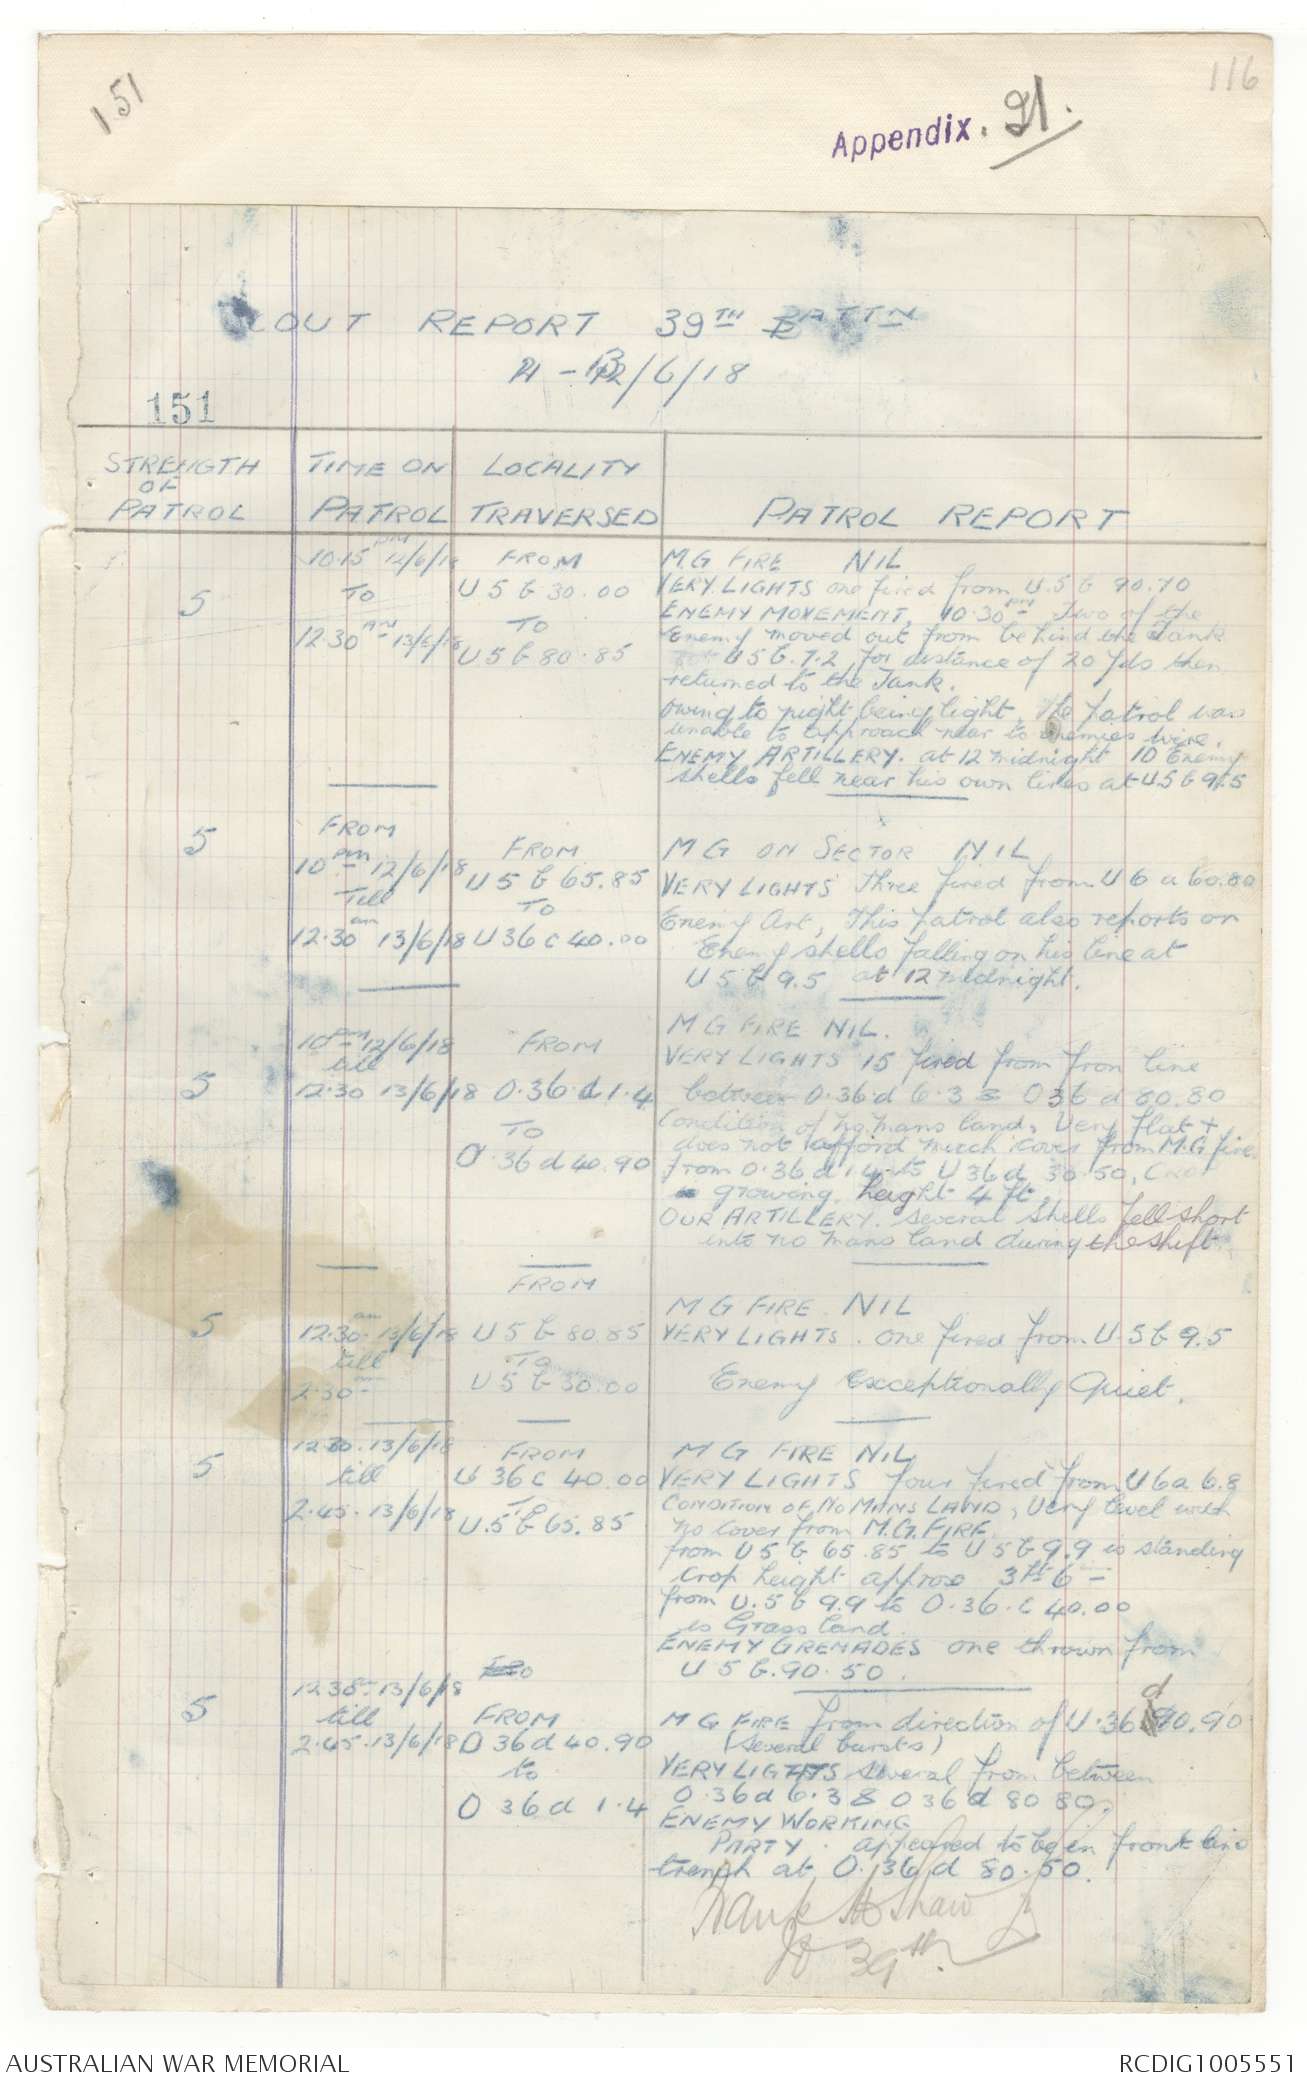 151
116
Appendix. 21.
SCOUT REPORT 39TH BATTN
12 - 13/6/18
151
STRENGTH OF PATROL
TIME ON PATROL
LOCALITY TRAVERSED
PATROL REPORT
5
10.15 pm 12/6/18
To
12.30 am 13/6/18
FROM
U 5 b 30.00
To
U 5 b 80.85
M.G FIRE NIL
VERY LIGHTS one fired from U.5 b 90.70
ENEMY MOVEMENT, 10.30 pm Two of the
Enemy moved out from behind the Tank
U 5 b.7.2, for distance of 20 yds then
returned to the Tank.
owing to night being light, the patrol was
unable to approach near to enemies wire.
ENEMY ARTILLERY. at 12 midnight 10 Enemy
shells fell near his own lines at U 5 b 9.5
5
FROM
10 pm 12/6/18
Till
12.30 am 13/6/18
FROM
U 5 b 65.85
To
U 36 c 40.00
M G ON SECTOR NIL
VERY LIGHTS Three fired from U 6 a 60.80
Enemy Art, This patrol also reports on
Enemy shells falling on his line at
U 5 b 9.5 at 12 midnight.
5
10 pm 12/6/18
till
12.30 13/6/18
FROM
O.36.d 1.4
To
O.36 d 40.90
M G FIRE NIL.
VERY LIGHTS 15 fired from fron line
between O.36 d 6.3 & O 36 d 80.80
Condition of no mans land, Very flat +
does not afford much cover from M.G fire
from O.36 d 1.4 to U 36 d 30.50,
growing. height 4 ft.
OUR ARTILLERY. several shells fell short
into no mans land during the shift.
5
12.30 am 13/6/18
till
2.30 am
FROM
U 5 b 80.85
To
U 5 b 30.00
M G FIRE. NIL
VERY LIGHTS. one fired from U.5 b 9.5
Enemy exceptionally Quiet.
5
12.30. 13/6/18
till
2.45. 13/6/18
FROM
U 36 c 40.00
To
U.5 b 65.85
M G FIRE NIL
VERY LIGHTS four fired from U 6a 6.8
CONDITION OF NO MANS LAND, Very level with
no cover from M.G. FIRE.
from U 5 b 65.85 to U 5 b 9.9 is standing
crop height approx 3ft 6
from U.5 b 9.9 to O.36.c 40.00
is Grass land.
ENEMY GRENADES one thrown from
U 5 b.90.50.
5
12.30 13/6/18
till
2.45. 13/6/18
FROM
O 36 d 40.90
to
O 36 d 1.4
M G FIRE from direction of U.36 d 90.90
(several bursts)
VERY LIGHTS several from between
O.36d 6.3 & O 36 d 80 80.
ENEMY WORKING
PARTY. appeared to be in front line
trench at O.36 d 80.50.
Frank H Shaw Lt
39th.
AUSTRALIAN WAR MEMORIAL
RCDIG1005551